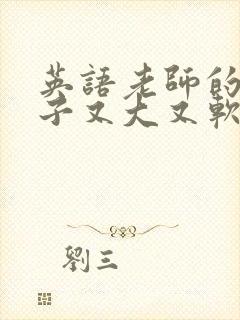 英語老師的
子又大又軟
劉三